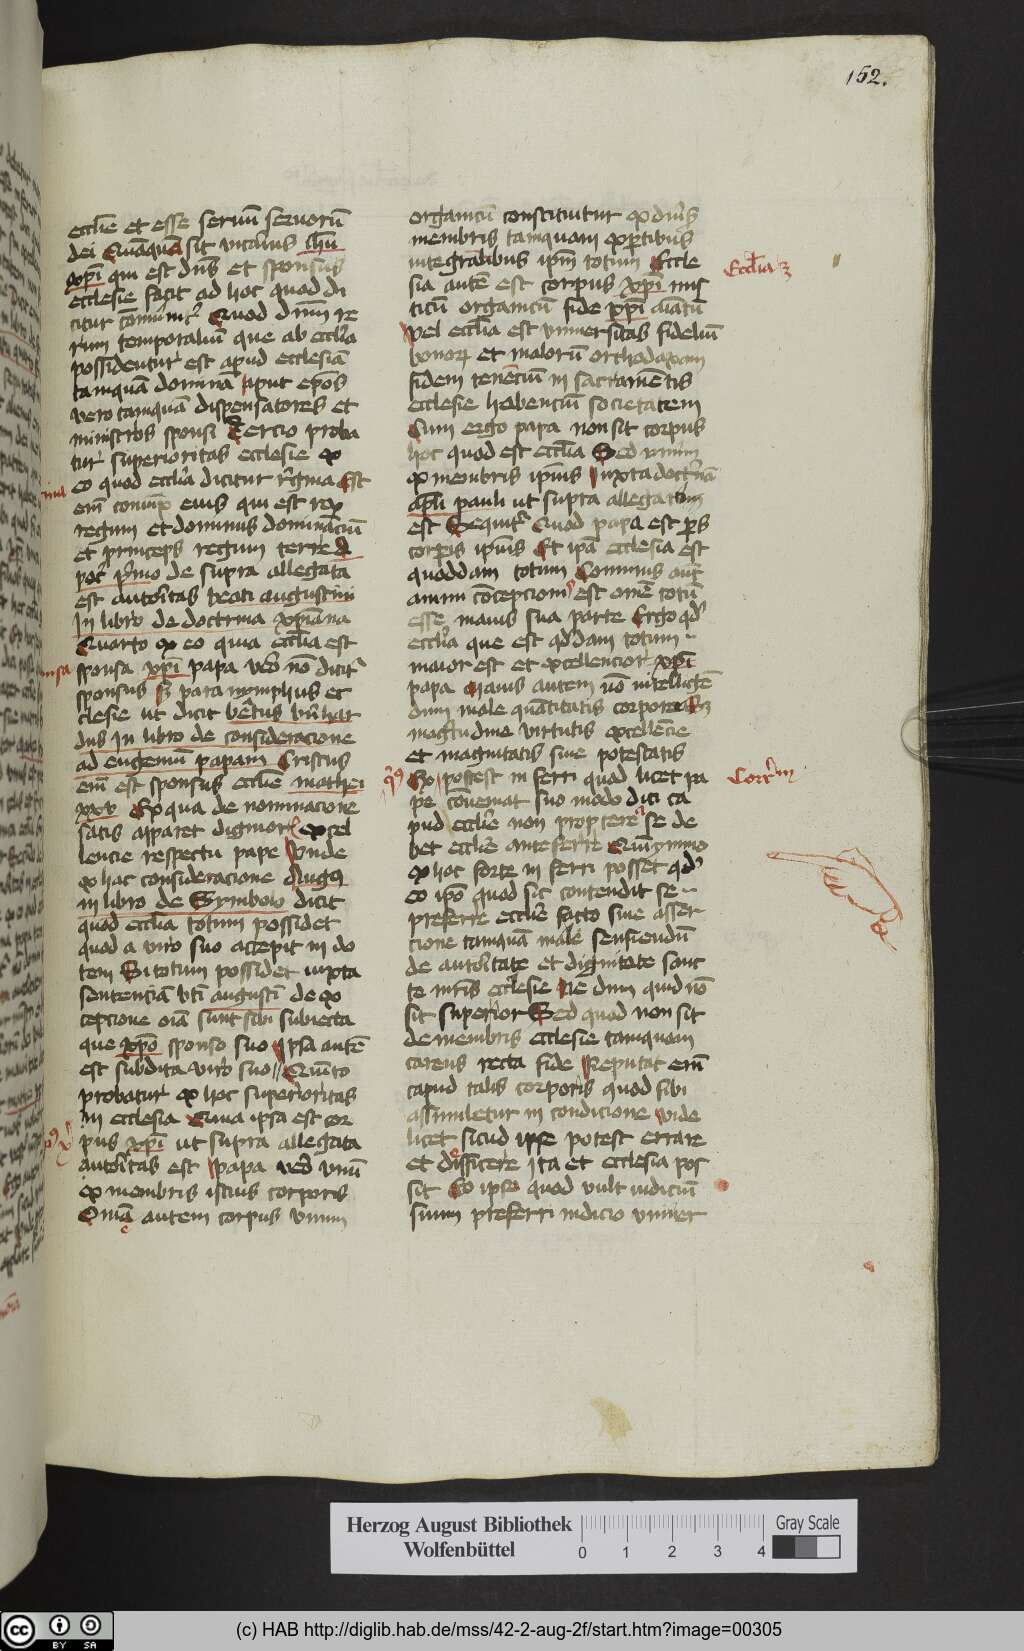 152.
ecclie et esse seruuͫ seruorū
dei Quāquā sit vicariꝰ ihū
xpī qui est dn̄s et sponsus
ecclesie facit ad hoc quod di
Quod dnīm re
rum temporaliuͫ que ab ecclīa
possidentur est apud ecclesiā
tamquā dominā aput ep̄os
vero tamquā dispensatores et
ministros sponsi Tercio proba
tur superioritas ecclesie ex
eo quod ecclīa dicitur rēgina Est
em̄ eius qui est rex
regum et dominus dominaciū
et princeps regum terre
de supra allegata
est autoritas beati augustini
in libro de doctrina xp̄iana
Quarto ex eo quia ecclīa est
sponsa xpī papa vero nō dicit᷑
sponsus sꝫ paranymphus ec
clesie ut dicit beātus bn̄har
dus in libro de consideracione
ad eugenium papam Cristus
em̄ est sponsus ecclīe mathei
xxv Ex qua de nominacione
satis apparet dignior excel
lencie respectu pape Vnde
ex hac consideracione Augꝰ
in libro de Symbolo dicit
quod ecclīa totum possidet
quod a viro suo accepit in do
tem Si totum possidet iuxta
sentenciā bt̄i augustī de ex
cepcione oīa sunt sibi subiecta
que xp̄o sponso suo ipsa autē
est subdita viro suo // Quīto
probatur ex hoc superioritas
in ecclesia Quia ipsa est cor
pus xpī ut supra allegata
autoritas est papa vero vnū
ex membris istius corporis
Omē autem corpus vnum
organicū constituitur ex diūsis
membris tamquam ex partibus
integralibus ipm̄ totum Eccle
sia autē est corpus xpī mis
ticū organicū fide xpī aīatū
Vel ecclīa est vniuersitas fideliū
bonoꝝ et malorū orthodoxam
fidem tenēciū in sacramētis
ecclesie habenciū societatem
Cum ergo papa non sit corpus
hoc quod est ecclīa Sed vnum
ex membris ipsius iuxta doctrinā
apl̄i pauli ut supra allegatum
est Sequit᷑ Quod papa est p̄s
corporis ipsius Et ipā ecclesia est
quoddam totum Communis aūt
animi concepcionis est omē totū
esse maius sua parte Ergo qd̄
ecclīa que est qd̄dam totum
maior est et excellencior xpī
papa maius autem nō intelligē
dum mole quātitatis corporee sꝫ
magītudine virtutis excellēcie
et magnitatis siue potestatis
Ex possest in ferri quod licet pa
pe conueniat suo modo dici ca
pud ecclīe non propterea se de
bet ecclīe anteferre Quinymmo
ex hoc forte in ferri posset qd̄
eo ipō quod sic contendit se
preferre ecclīe facto siue asser
cione tamquā male senciendū
de autoritate et dignitate sanc
te mr̄is ecclesie ne dum quid nō
sit superior Sed quod non sit
de membris ecclesie tamquam
carens recta fide Reputat em̄
capud talis corporis quod sibi
assimiletur in condicione vnde
licet sicud ipse potest errare
et difficere ita et ecclesia pos
sit Eo ipso quod vult iudiciū
suum preferri iudicio vniuer
Ecclīa
Herzog August Bibliothek
Wolfenbüttel
0 1 2 3 4
Gray Scale
cc BY SA
(c) HAB http://diglib.hab.de/mss/42-2-aug-2f/start.htm?image=00305